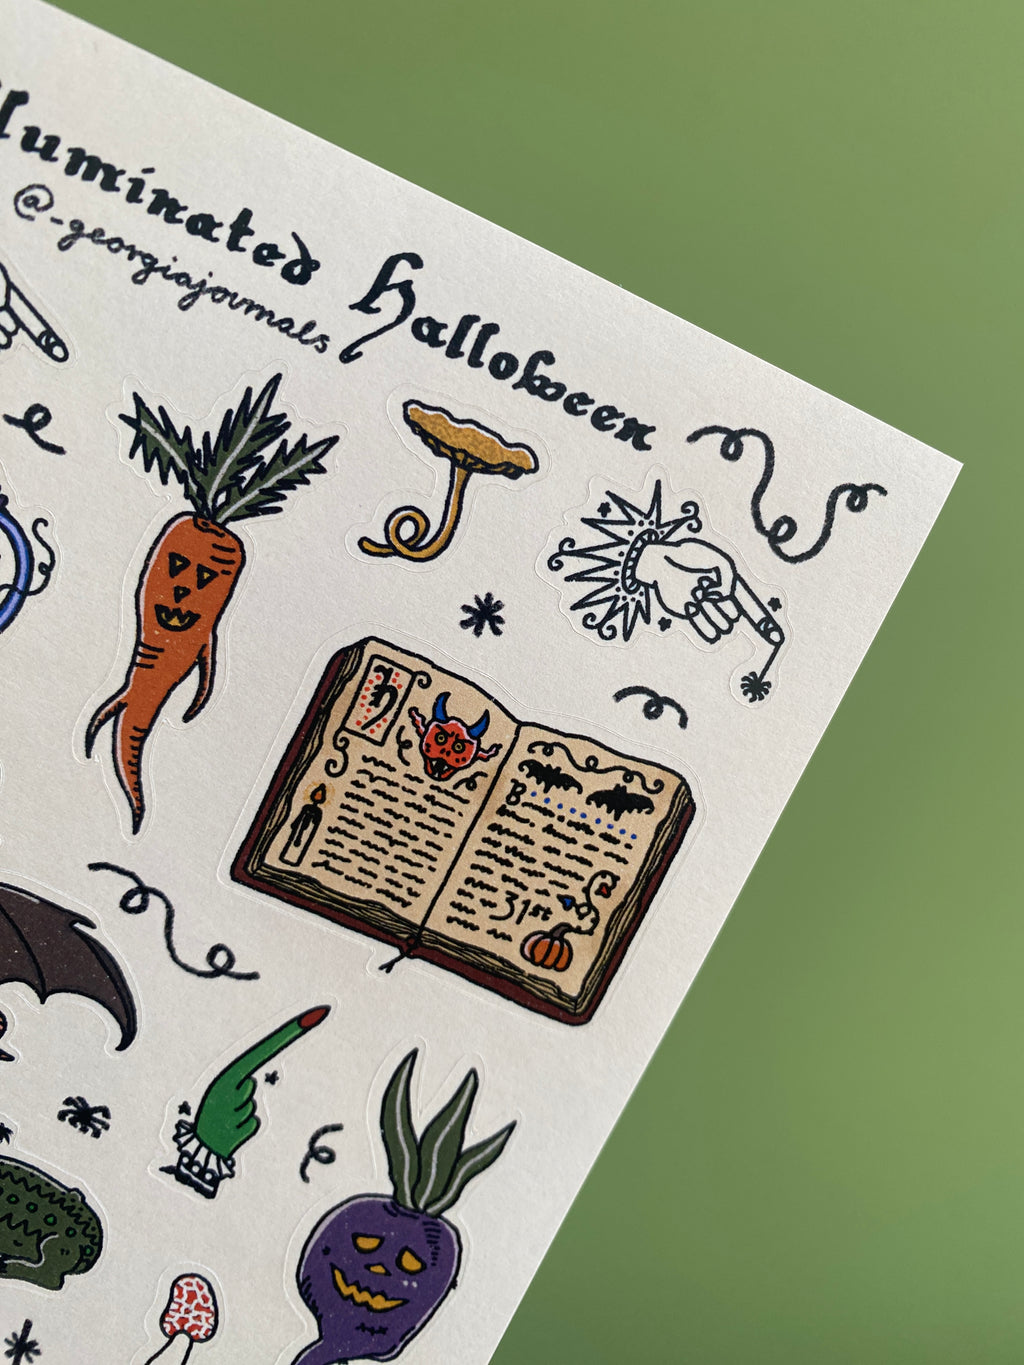 lluminated Halloween
@-georgiajournals
h
B
31st